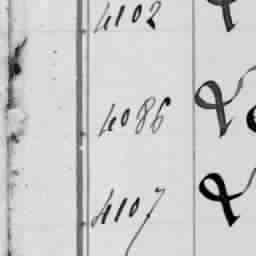 4102
4086
4107